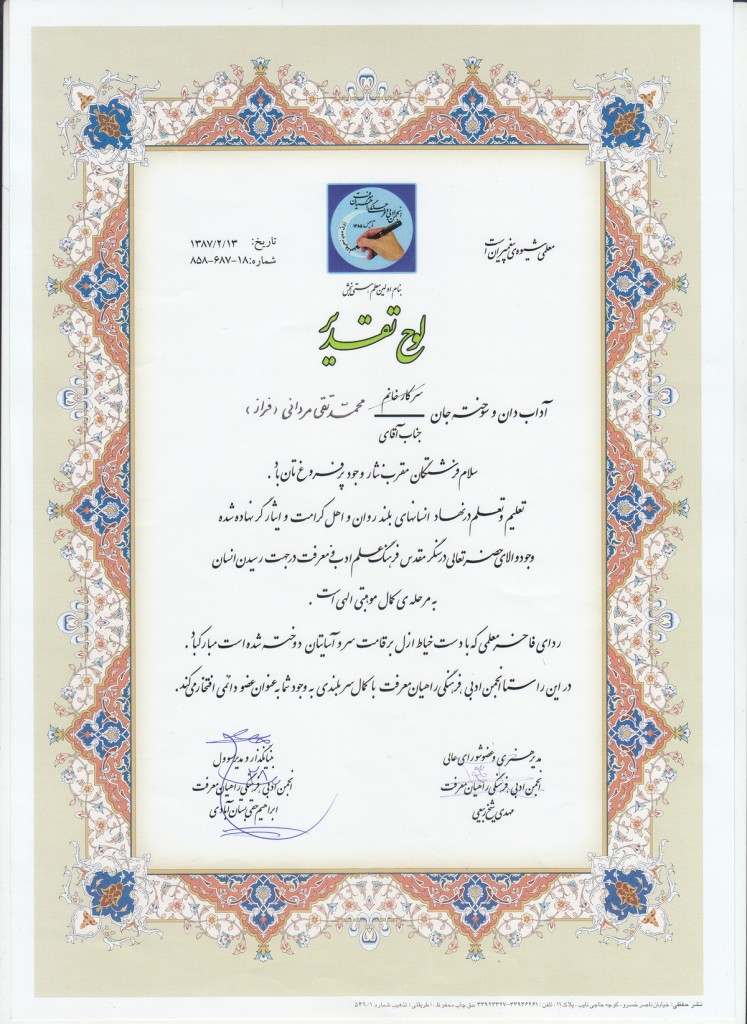 معلمی شیوه‌ی پیغمبران است
تاریخ: ۱۳۸۷/۲/۱۳
شماره: ۱۸-۶۸۷-۸۵۸
بنام اولین معلم هستی بخش
لوح تقدیر
آداب دان و سوخته جان سرکار خانم محمدتقی مردانی (فراز)
جناب آقای
سلام فرشتگان مقرب نثار وجود پر فروغ تان باد.
تعلیم و تعلم در نهاد انسانهای بلند روان و اهل کرامت و ایثارگر نهاده شده
وجود والای حضرتعالی در سنگر مقدس فرهنگ علم ادب و معرفت در جهت رسیدن انسان
به مرحله ی کمال موهبتی الهی است.
ردای فاخر معلمی که با دست خیاط ازل بر قامت سرو آسایتان دوخته شده است مبارکباد.
در این راستا انجمن ادبی فرهنگی راهیان معرفت با کمال سربلندی به وجود شما به عنوان عضو دائمی افتخار می کند.
مدیر هنری و عضو شورای عالی
انجمن ادبی فرهنگی راهیان معرفت
مهدی شیخ ربیعی
بنیانگذار و مدیر مسوول
انجمن ادبی فرهنگی راهیان معرفت
ابراهیم حقی بستان آبادی
نشر حفظی: خیابان ناصر خسرو - کوچه حاجی نایب - پلاک ۱۱ - تلفن: ۳۳۹۳۶۲۶۱-۳۳۹۲۳۳۲۷ حق چاپ محفوظ